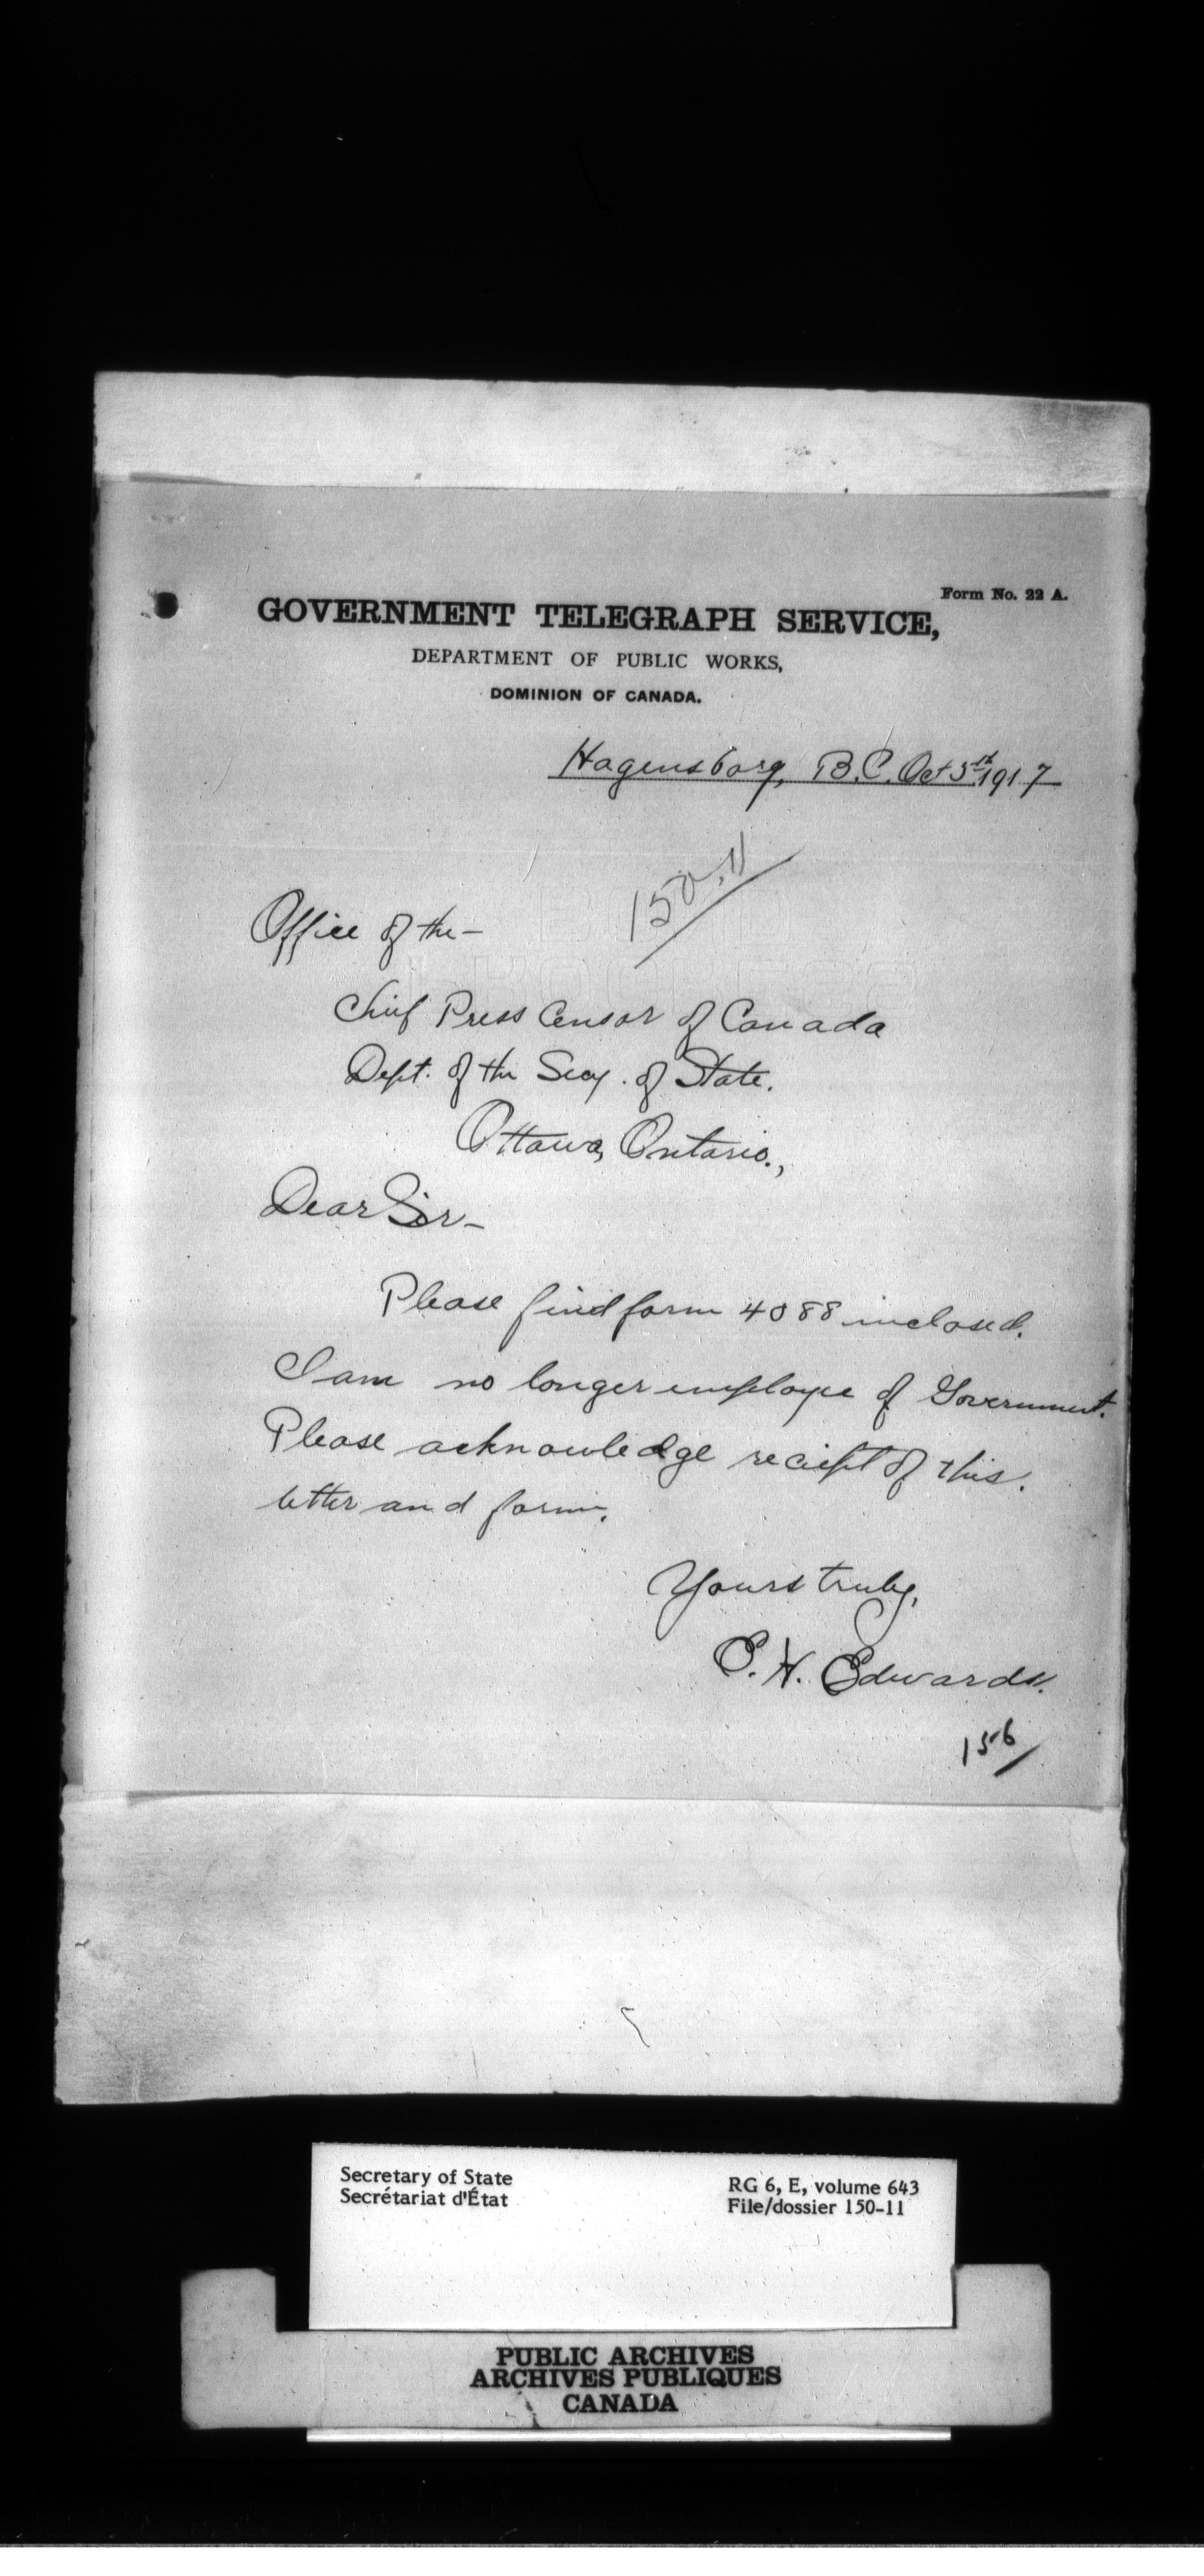 Form No. 22 A.
GOVERNMENT TELEGRAPH SERVICE,
DEPARTMENT OF PUBLIC WORKS,
DOMINION OF CANADA.
Hagensborg, B.C. Oct 5th 1917
150-11
Office of the-
Chief Press Censor of Canada
Dept. of the Secy. of State.
Ottawa, Ontario.,
Dear Sir-
Please find form 4088 inclosed.
I am no longer employee of Government.
Please acknowledge reciept of this.
letter and form.
Yours truly,
E. H. Edwards.
156
Secretary of State
Secrétariat d'État
RG 6, E, volume 643
File/dossier 150-11
PUBLIC ARCHIVES
ARCHIVES PUBLIQUES
CANADA